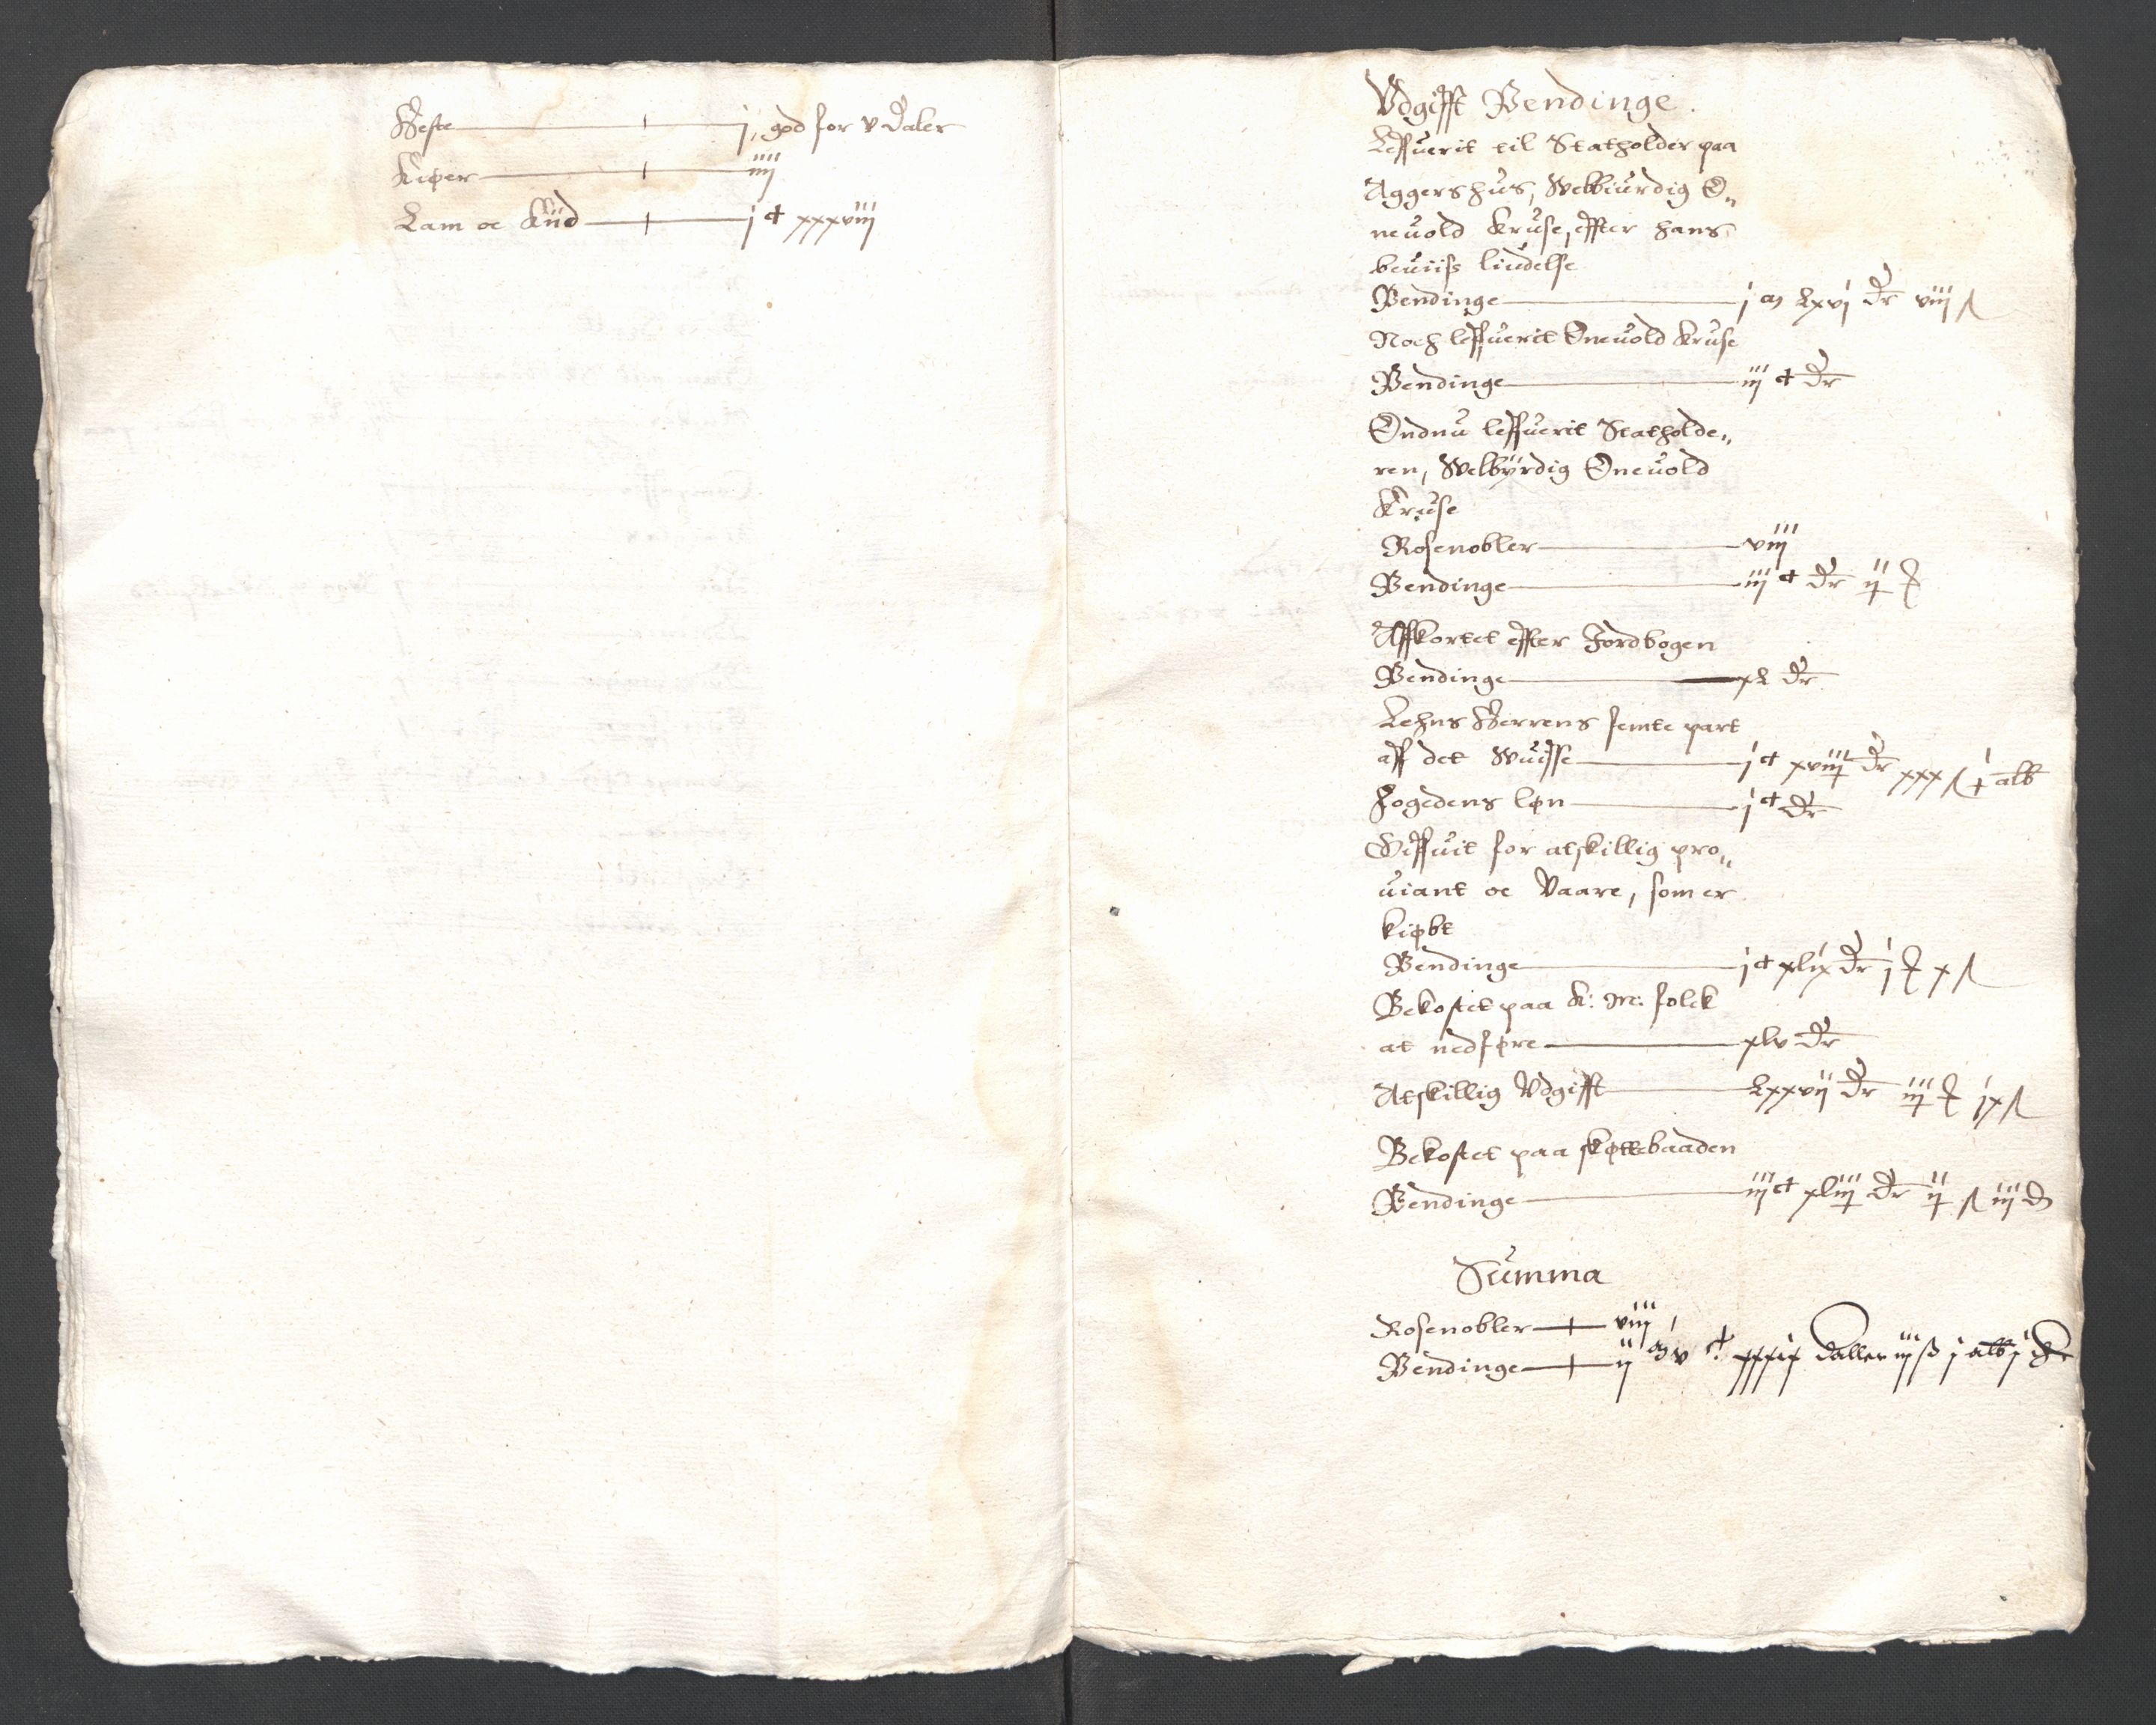 Heste j, god for v Daler
Kiøer iiij
Lam oc Kiid j c xxxviij
Vdgifft Pendinge.
Leffuerit til Statholder paa
Aggershus, Welbiurdig E„
neuold Kruse, effter hans
beuiis liudelse
Pendinge j m Lxvj Dr viij ß
Noch leffuerit Eneuold Kruse
Pendinge iij c Dr
Endnu leffuerit Statholde„
ren, Welbyrdig Eneuold
Kruse
Rosenobler viij
Pendinge iij c Dr ij
Affkortet effter Jordbogen
Pendinge xL Dr
Lehns Herrens femte part
aff det Wuisse j c xviij Dr xxx ß j alb
Fogedens løn j c Dr
Giffuit for atskillig pro„
uiant oc Vaare, som er
kiøbt
Pendinge j c xlix Dr j x ß
Bekostet paa K: M: folck
at nedføre xlv Dr
Atskillig Vdgifft Lxxvij Dr iij ix ß
Bekostet paa skøttebaaden
Pendinge iij c xliij Dr ij ß iij
Summa
Rosenobler viij
Pendinge ij m v c xxxix Daller iij ß j alb j